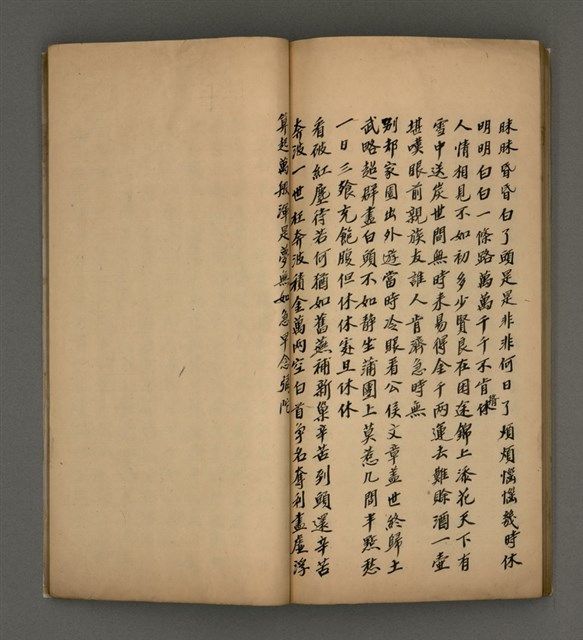 昧昧昏昏白了頭是是非非何日了煩煩惱惱幾時休
明明白白一條路萬萬千千不肯修
人情相見不如初多少賢良在困途錦上添花天下有
雪中送炭世間無時來易得金千兩運去難賒酒一壺
堪嘆眼前親族友誰人肯濟急時無
別却家園出外遊當時冷眼看公侯文章蓋世終歸土
武畧超群盡白頭不如静坐蒲團上莫惹几間半點愁
一日三飱充飽腹但休休處且休休
看破紅塵待若何猶如舊燕補新巢辛苦到頭還辛苦
奔波一世枉奔波積金萬両空白首爭名奪利盡虛浮
算起萬般渾是夢無如急早念彌陀